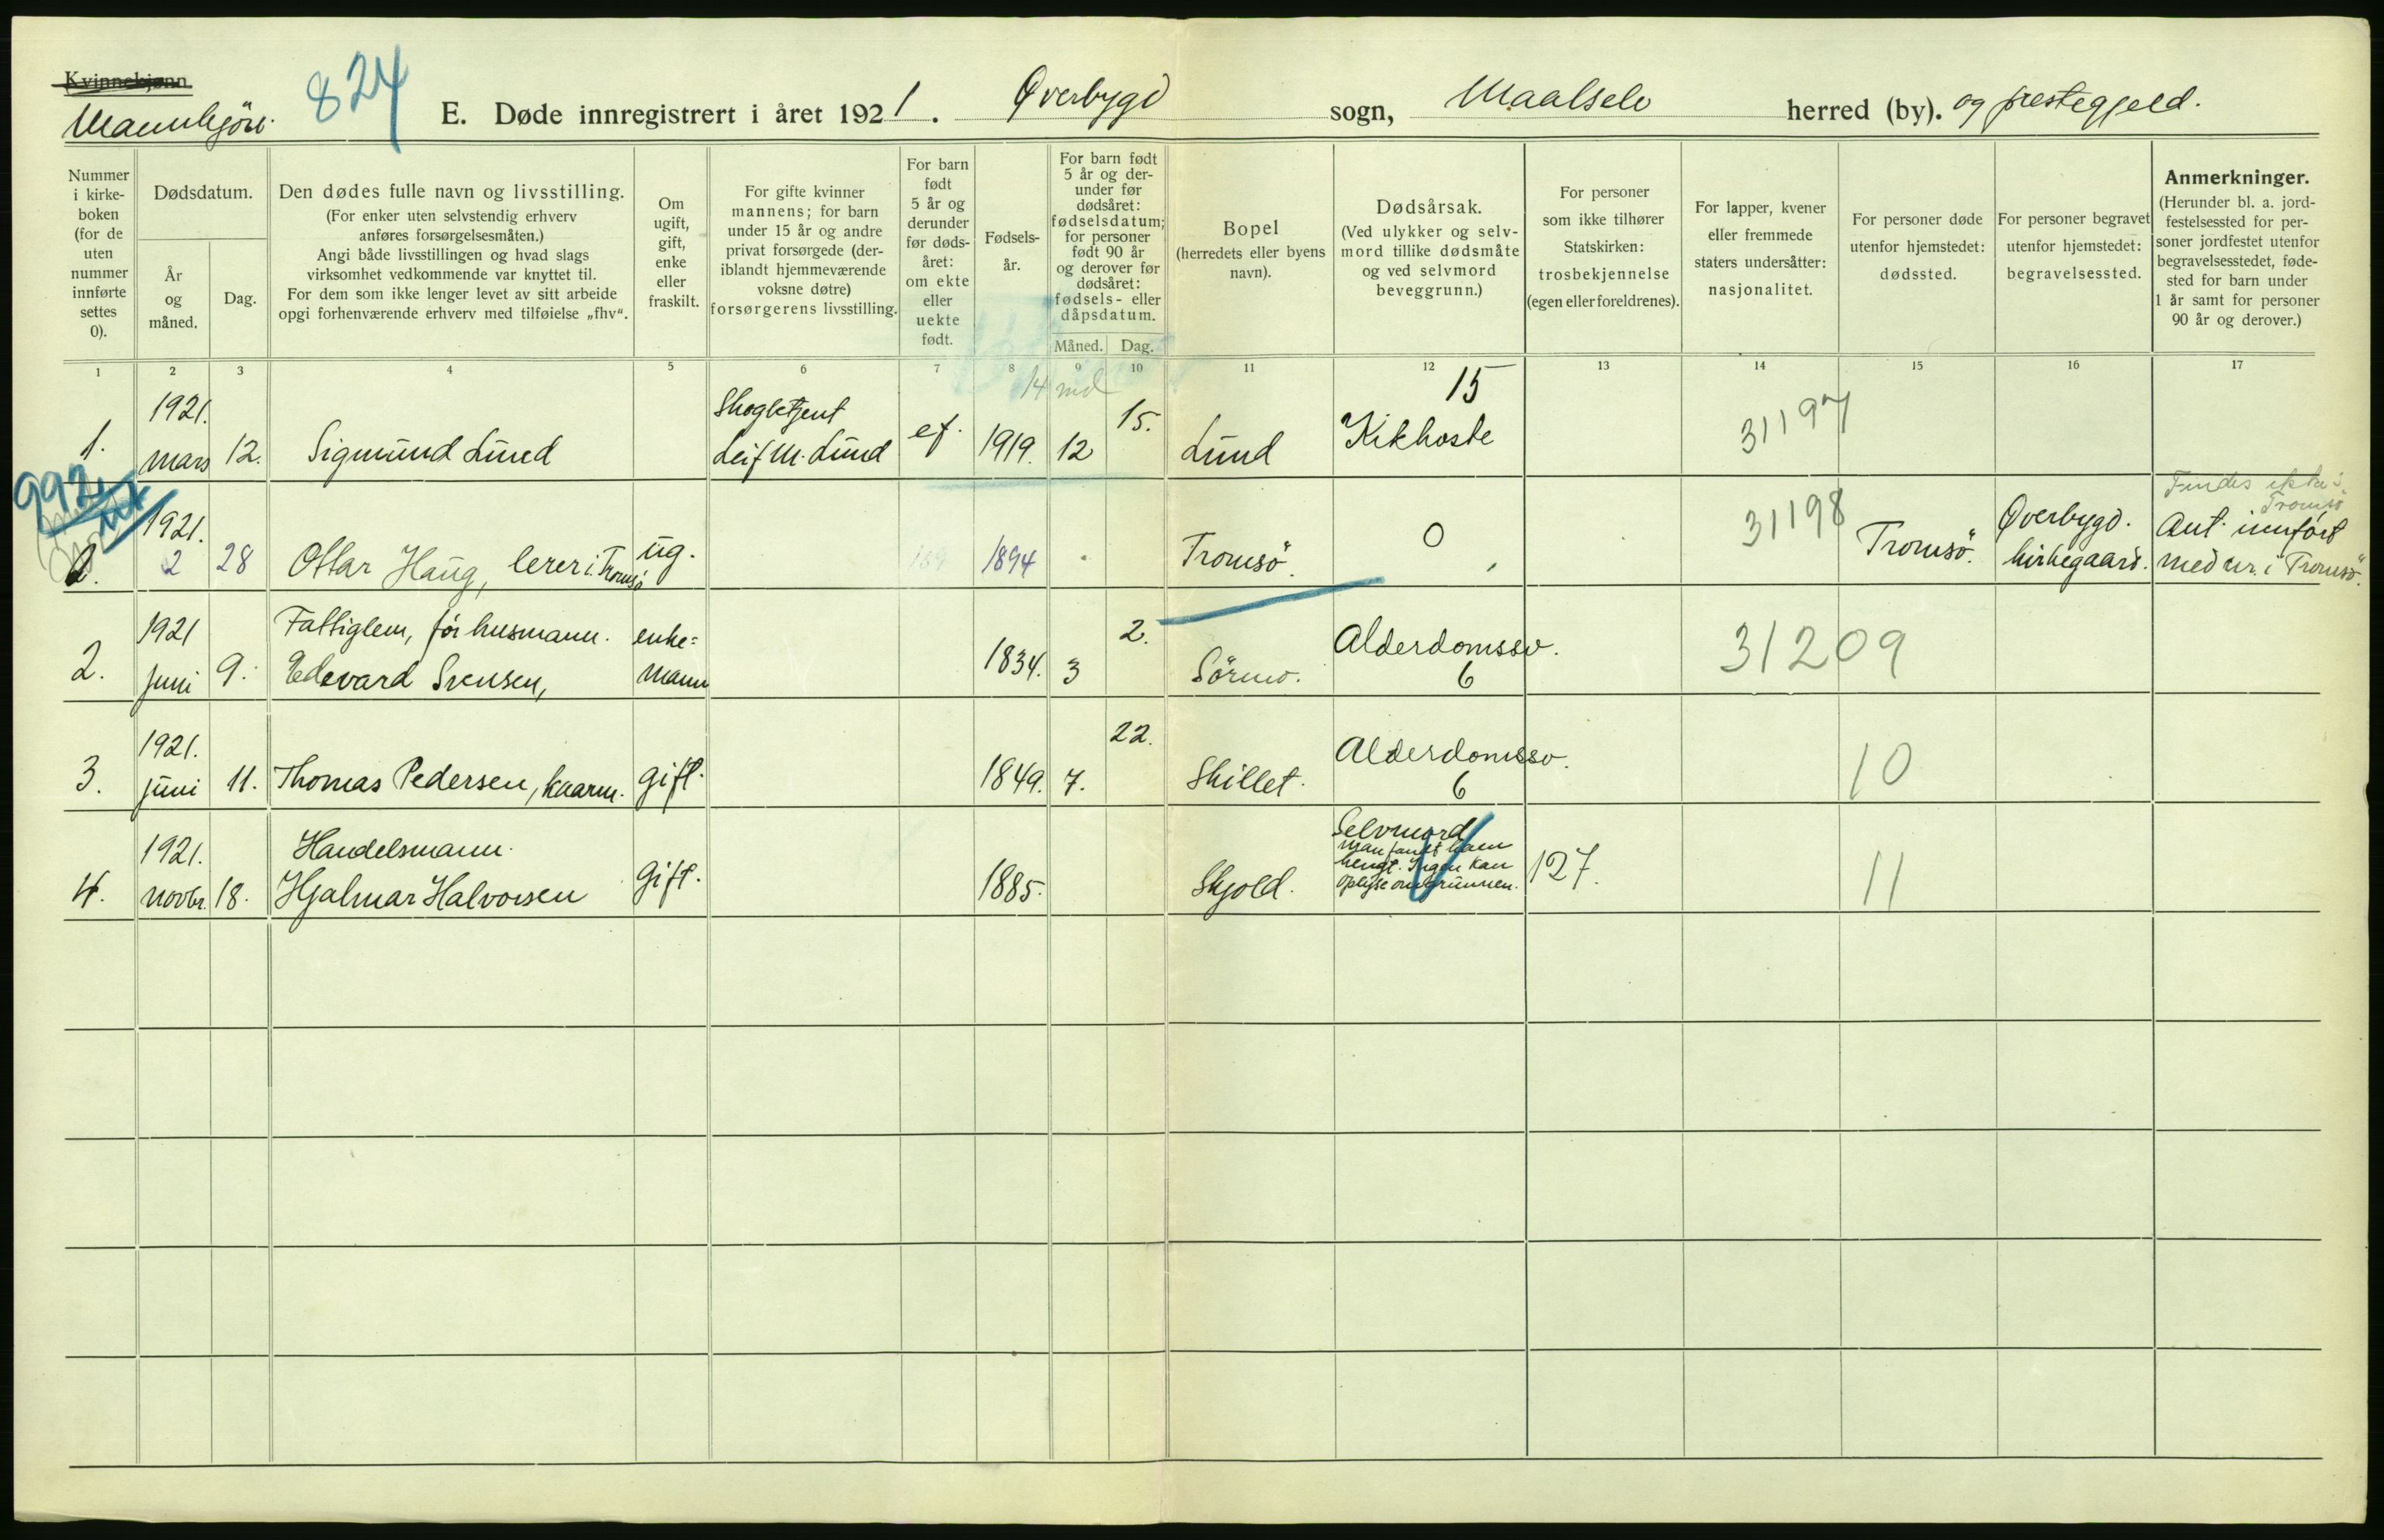 Kvinnekjønn.
Mannkjön.
824
E. Døde innregistrert i året 1921. Øverbygd sogn, Maalselv herred (by). og prestegjeld.
Nummer i kirke-boken (for de uten nummer innførte settes 0).
Dødsdatum.
År og måned.
Dag.
Den dødes fulle navn og livsstilling.
(For enker uten selvstendig erhverv
anføres forsørgelsesmåten.)
Angi både livsstillingen og hvad slags
virksomhet vedkommende var knyttet til.
For dem som ikke lenger levet av sitt arbeide
opgi forhenværende erhverv med tilføielse „fhv“.
Om ugift, gift, enke eller fraskilt.
For gifte kvinner
mannens; for barn
under 15 år og andre
privat forsørgede (der-
iblandt hjemmeværende
voksne døtre)
forsørgerens livsstilling.
For barn født 5 år og derunder før døds-året: om ekte eller uekte født.
Fødsels-år.
For barn født
5 år og der-
under før
dødsåret:
fødselsdatum;
for personer
født 90 år
og derover før
dødsåret:
fødsels- eller
dåpsdatum.
Måned. Dag.
Bopel
(herredets eller byens
navn).
Dødsårsak.
(Ved ulykker og selv-
mord tillike dødsmåte
og ved selvmord
beveggrunn.)
For personer
som ikke tilhører
Statskirken:
trosbekjennelse
(egen eller foreldrenes).
For lapper, kvener
eller fremmede
staters undersåtter:
nasjonalitet.
For personer døde
utenfor hjemstedet:
dødssted.
For personer begravet
utenfor hjemstedet:
begravelsessted.
Anmerkninger.
(Herunder bl. a. jord-
festelsessted for per-
soner jordfestet utenfor
begravelsesstedet, føde-
sted for barn under
1 år samt for personer
90 år og derover.)
1 2 3 4 5 6 7 8 9 10 11 12 13 14 15 16 17
1921. Skogbetjent 14 md 15. 15
1. mars 12. Sigmund Lund Leif M. Lund ef. 1919. 12 Lund Kikhoste 31197
992
Findes ikke i Tromsö
1921. Øverbygd. Ant. innført
2 28 Ottar Haug, lærer i Tromsö ug. 1894 Tromsö. 0 31198 Tromsö. kirkegaard. med nr. i Tromsö.
1921 Fattiglem, før husmann. enke= 2. Alderdomssv.
2. juni 9. Edevard Svensen, mann 1834. 3 Sörmo. 6 31209
1921. 22. Alderdomssv.
3. juni 11. Thomas Pedersen, kaarm. gift. 1849. 7. Skillet. 6 10
1921. Handelsmann. Selvmord
man fandt ham
hengt. Ingen kan
oplyse om grunnen.
4. novbr. 18. Hjalmar Halvorsen gift. 1885. Skjold. 127. 11